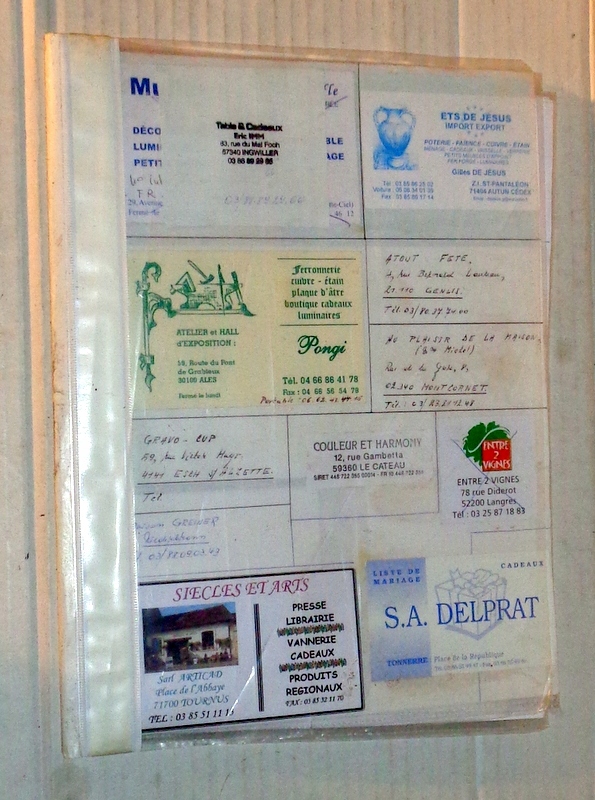 DÉCO
LUMI
PETI
29, Avenue
Table & Cadeaux
Eric IMM
83, rue du Mal Foch
57340 INGWILLER
03 88 89
BLE
AGE
46 12
ETS DE JÉSUS
IMPORT EXPORT
POTERIE - FAIENCE - CUIVRE - ÉTAIN
Gilles DE JÉSUS
Z.I. ST-PANTALÉON
71404 AUTUN CEDEX
Tél : 03 85 86 25 02
Voiture : 06 08 34 51 35
Fax : 03 85 86 17 14
ATELIER et HALL
d'EXPOSITION :
19, Route du Pont
de Grabieux
30100 ALES
Fermé le lundi
Ferronnerie
cuivre - étain
plaque d'âtre
boutique cadeaux
luminaires
Pongi
Tél. 04 66 86 41 78
Fax : 04 66 56 54 79
Portable
ATOUT FETE,
21 110 GENLIS.
Tél. 03/80.37.70.00
AU PLAISIR DE LA MAISON
02340 MONTCORNET
Tél : 03/23.21.42.48
GRAVO-CUP
59, rue Victor Hugo
4141 ESCH S/ALZETTE.
Tél
GREINER
03/88.09.03.43
COULEUR ET HARMONY
12, rue Gambetta
59360 LE CATEAU
ENTRE
2
VIGNES
ENTRE 2 VIGNES
78 rue Diderot
52200 Langres
Tél : 03 25 87 18 83
SIECLES ET ARTS
Sarl ARTICAD
Place de l'Abbaye
71700 TOURNUS
TEL : 03 85 51 11 13
PRESSE
LIBRAIRIE
VANNERIE
CADEAUX
PRODUITS
REGIONAUX
FAX : 03 85 32 11 70
LISTE DE
MARIAGE
CADEAUX
S.A. DELPRAT
TONNERRE
Place de la République